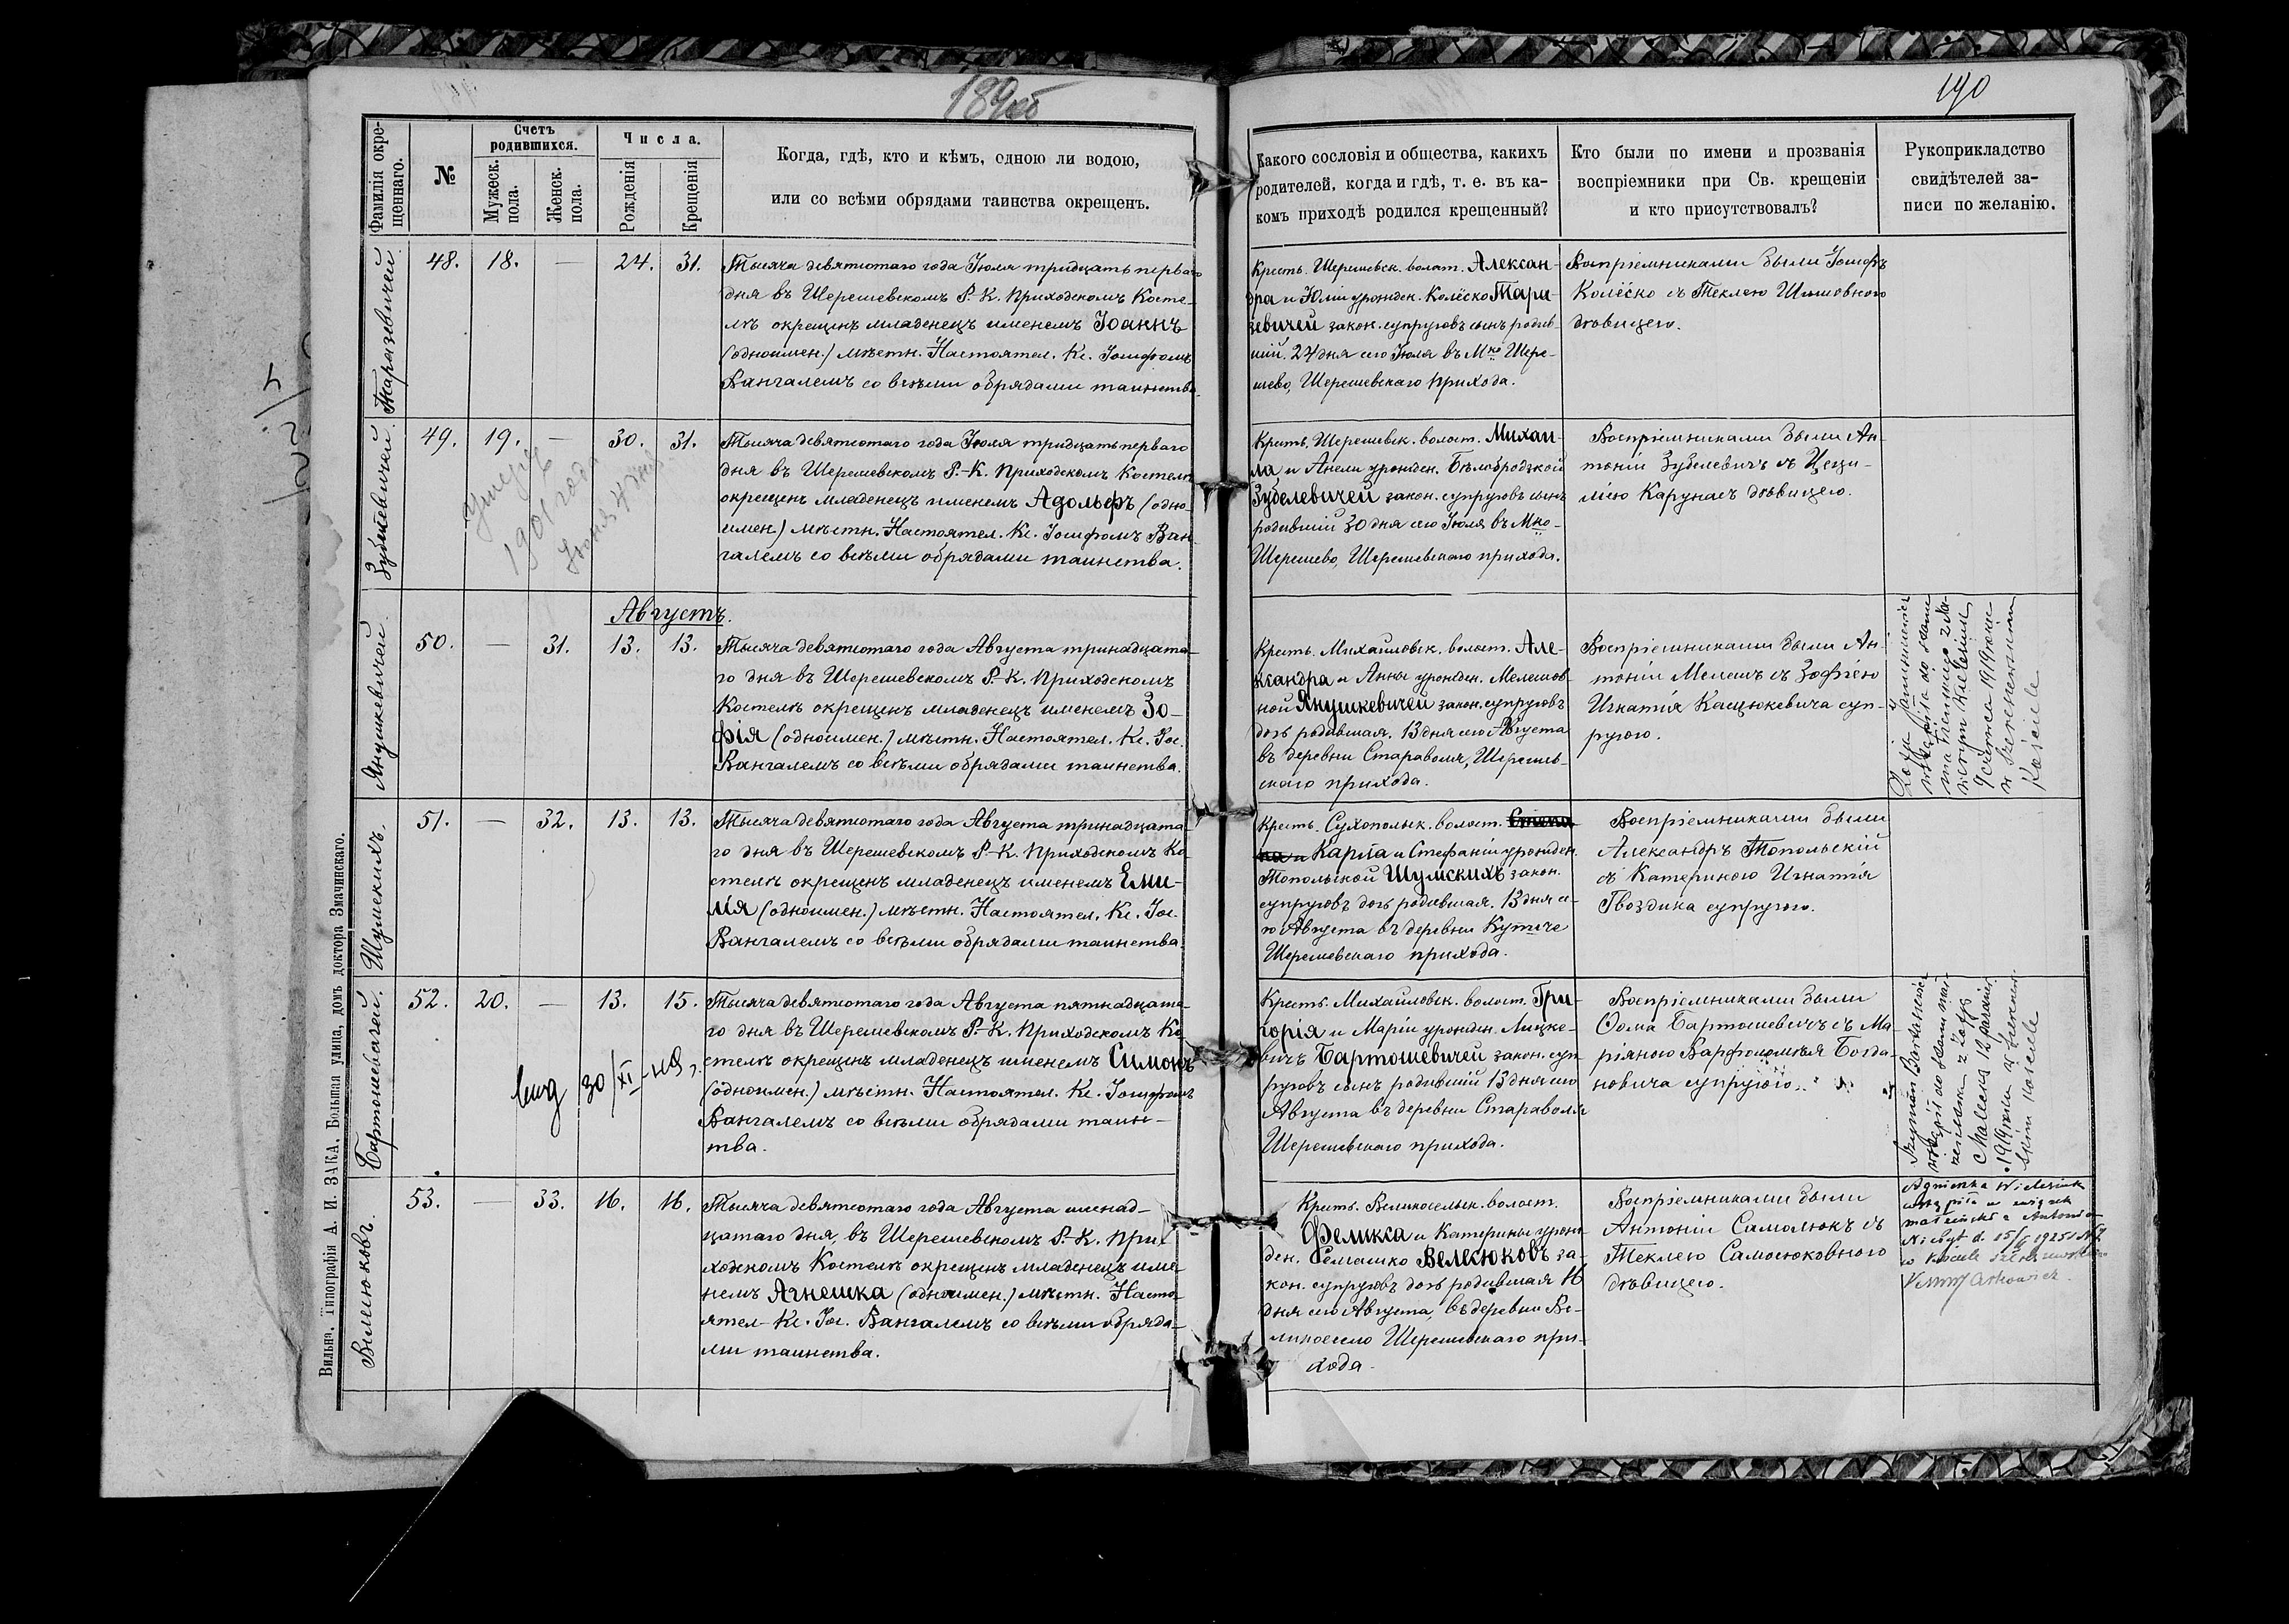 189об
190
Фамилія окре-
щеннаго.
№
Счетъ
родившихся.
Мужеск.
пола.
Женск.
пола.
Числа.
Рожденія
Крещенія
Когда, гдѣ, кто и кѣмъ, одною ли водою,
или со всѣми обрядами таинства окрещенъ.
Какого сословія и общества, какихъ
родителей, когда и гдѣ, т. е. въ ка-
комъ приходѣ родился крещенный?
Кто были по имени и прозванія
воспріемники при Св. крещеніи
и кто присутствовалъ?
Рукоприкладство
свидѣтелей за-
писи по желанію.
Таразевичей
48. 18. — 24. 31.
Тысяча девятьсотаго года Іюля тридцать перваго
дня въ Шерешевскомъ Р.-К. Приходскомъ Косте-
лѣ окрещенъ младенецъ именемъ Іоаннъ
(одноимен.) мѣстн. Настоятел. Кс. Іосифомъ
Вангалемъ со всѣми обрядами таинства.
Крестъ. Шерешевск. волост. Алексан-
дра и Юліи урожден. Колёско Тара-
зевичей закон. супруговъ сынъ родив-
шій. 24 дня сего Іюля въ Мко Шере-
шево, Шерешевскаго прихода.
Воспріемниками были Іосифъ
Колёско съ Теклею
дѣвицею.
Зубелевичей
49. 19. — 30. 31.
Умеръ
1901 года
Тысяча девятьсотаго года Іюля тридцать перваго
дня въ Шерешевскомъ Р.-К. Приходскомъ Костелѣ
окрещенъ младенецъ именемъ Адольфъ (одно-
имен.) мѣстн. Настоятел. Кс. Іосифомъ Ван-
галемъ со всѣми обрядами таинства.
Крестъ. Шерешевск. волост. Михаи-
ла и Анели урожден. Бѣлобродзкой
Зубелевичей закон. супруговъ сынъ
родившій 30 дня сего Іюля въ Мко-
Шерешево, Шерешевскаго прихода.
Воспріемниками были Ан-
тоній Зубелевичъ съ Цеци-
ліею Карунасъ дѣвицею.
Августъ.
Янушкевичей
50. — 31. 13. 13.
Тысяча девятьсотаго года Августа тринадцата-
го дня въ Шерешевскомъ Р.-К. Приходскомъ
Костелѣ окрещенъ младенецъ именемъ Зо-
фія (одноимен.) мѣстн. Настоятел. Кс. Іос.
Вангалемъ со всѣми обрядами таинства.
Крестъ. Михайловск. волост. Але-
ксандра и Анны урожден. Мелешов-
ной Янушкевичей закон. супруговъ
дочь родившая. 13 дня сего Августа
въ деревни Стараволя, Шерешев-
скаго прихода.
Воспріемниками были Ан-
тоній Мелешъ съ Зофіею
Игнатія Кацюкевича суп-
ругою.
Zofja Januszkiewicz
wstąpiła do stanu
małżeńskiego z
9 czerwca 1919 roku
w Szereszewskim
Kościele
Шумскихъ.
51. — 32. 13. 13.
Тысяча девятьсотаго года Августа тринадцата-
го дня въ Шерешевскомъ Р.-К. Приходскомъ Ко-
стелѣ окрещенъ младенецъ именемъ Еми-
лія (одноимен.) мѣстн. Настоятел. Кс. Іос.
Вангалемъ со всѣми обрядами таинства.
Крестъ. Сухопольск. волост. Степа-
на и Карпа и Стефаніи урожден.
Топольской Шумскихъ закон.
супруговъ дочь родившая. 13 дня се-
го Августа въ деревни Кутиче
Шерешевскаго прихода.
Воспріемниками были
Александръ Топольскій
съ Катериною Игнатія
Гвоздика супругою.
Бартошевичей.
52. 20. — 13. 15.
30/XI
Тысяча девятьсотаго года Августа пятнадцата-
го дня въ Шерешевскомъ Р.-К. Приходскомъ Ко-
стелѣ окрещенъ младенецъ именемъ Симонъ
(одноимен.) мѣстн. Настоятел. Кс. Іосифомъ
Вангалемъ со всѣми обрядами таинс-
тва.
Крестъ. Михайловск. волост. Гри-
горія и Маріи урожден. Лицке-
вичъ Бартошевичей закон. суп-
руговъ сынъ родившій 13 дня сего
Августа въ деревни Стараволя
Шерешевскаго прихода.
Воспріемниками были
Ѳома Бартошевичъ съ Ма-
ріяною Варфоломѣя Богда-
новича супругою.
Szymon Bartasiewicz
wstąpił do stanu mał-
żeńskiego z Zofją
1919 roku w Szereszew-
skim Kościele
Вилсюковъ.
53. — 33. 16. 16.
Тысяча девятьсотаго года Августа шенад-
цатаго дня, въ Шерешевскомъ Р.-К. При-
ходскомъ Костелѣ окрещенъ младенецъ име-
немъ Агнешка (одноимен.) мѣстн. Насто-
ятел. Кс. Іос. Вангалемъ со всѣми обряда-
ми таинства.
Крестъ. Великосельск. волост.
Феликса и Катерины урож-
ден. Семашко Велесюковъ за-
кон. супруговъ дочь родившая 16
дня сего Августа, въ деревни Ве-
ликоесело Шерешевскаго при-
хода.
Воспріемниками были
Антоній Самолюкъ съ
Теклею Самосюковною
дѣвицею.
Agnieszka Wielesiuk
wstąpiła w związek
małżeński z Antonim
Niebyt d. 15/II 1925 r.
w Kościele Szereszewskim
Вильна. Типографія А. И. ЗАКА, Большая улица, домъ доктора Змачинскаго.